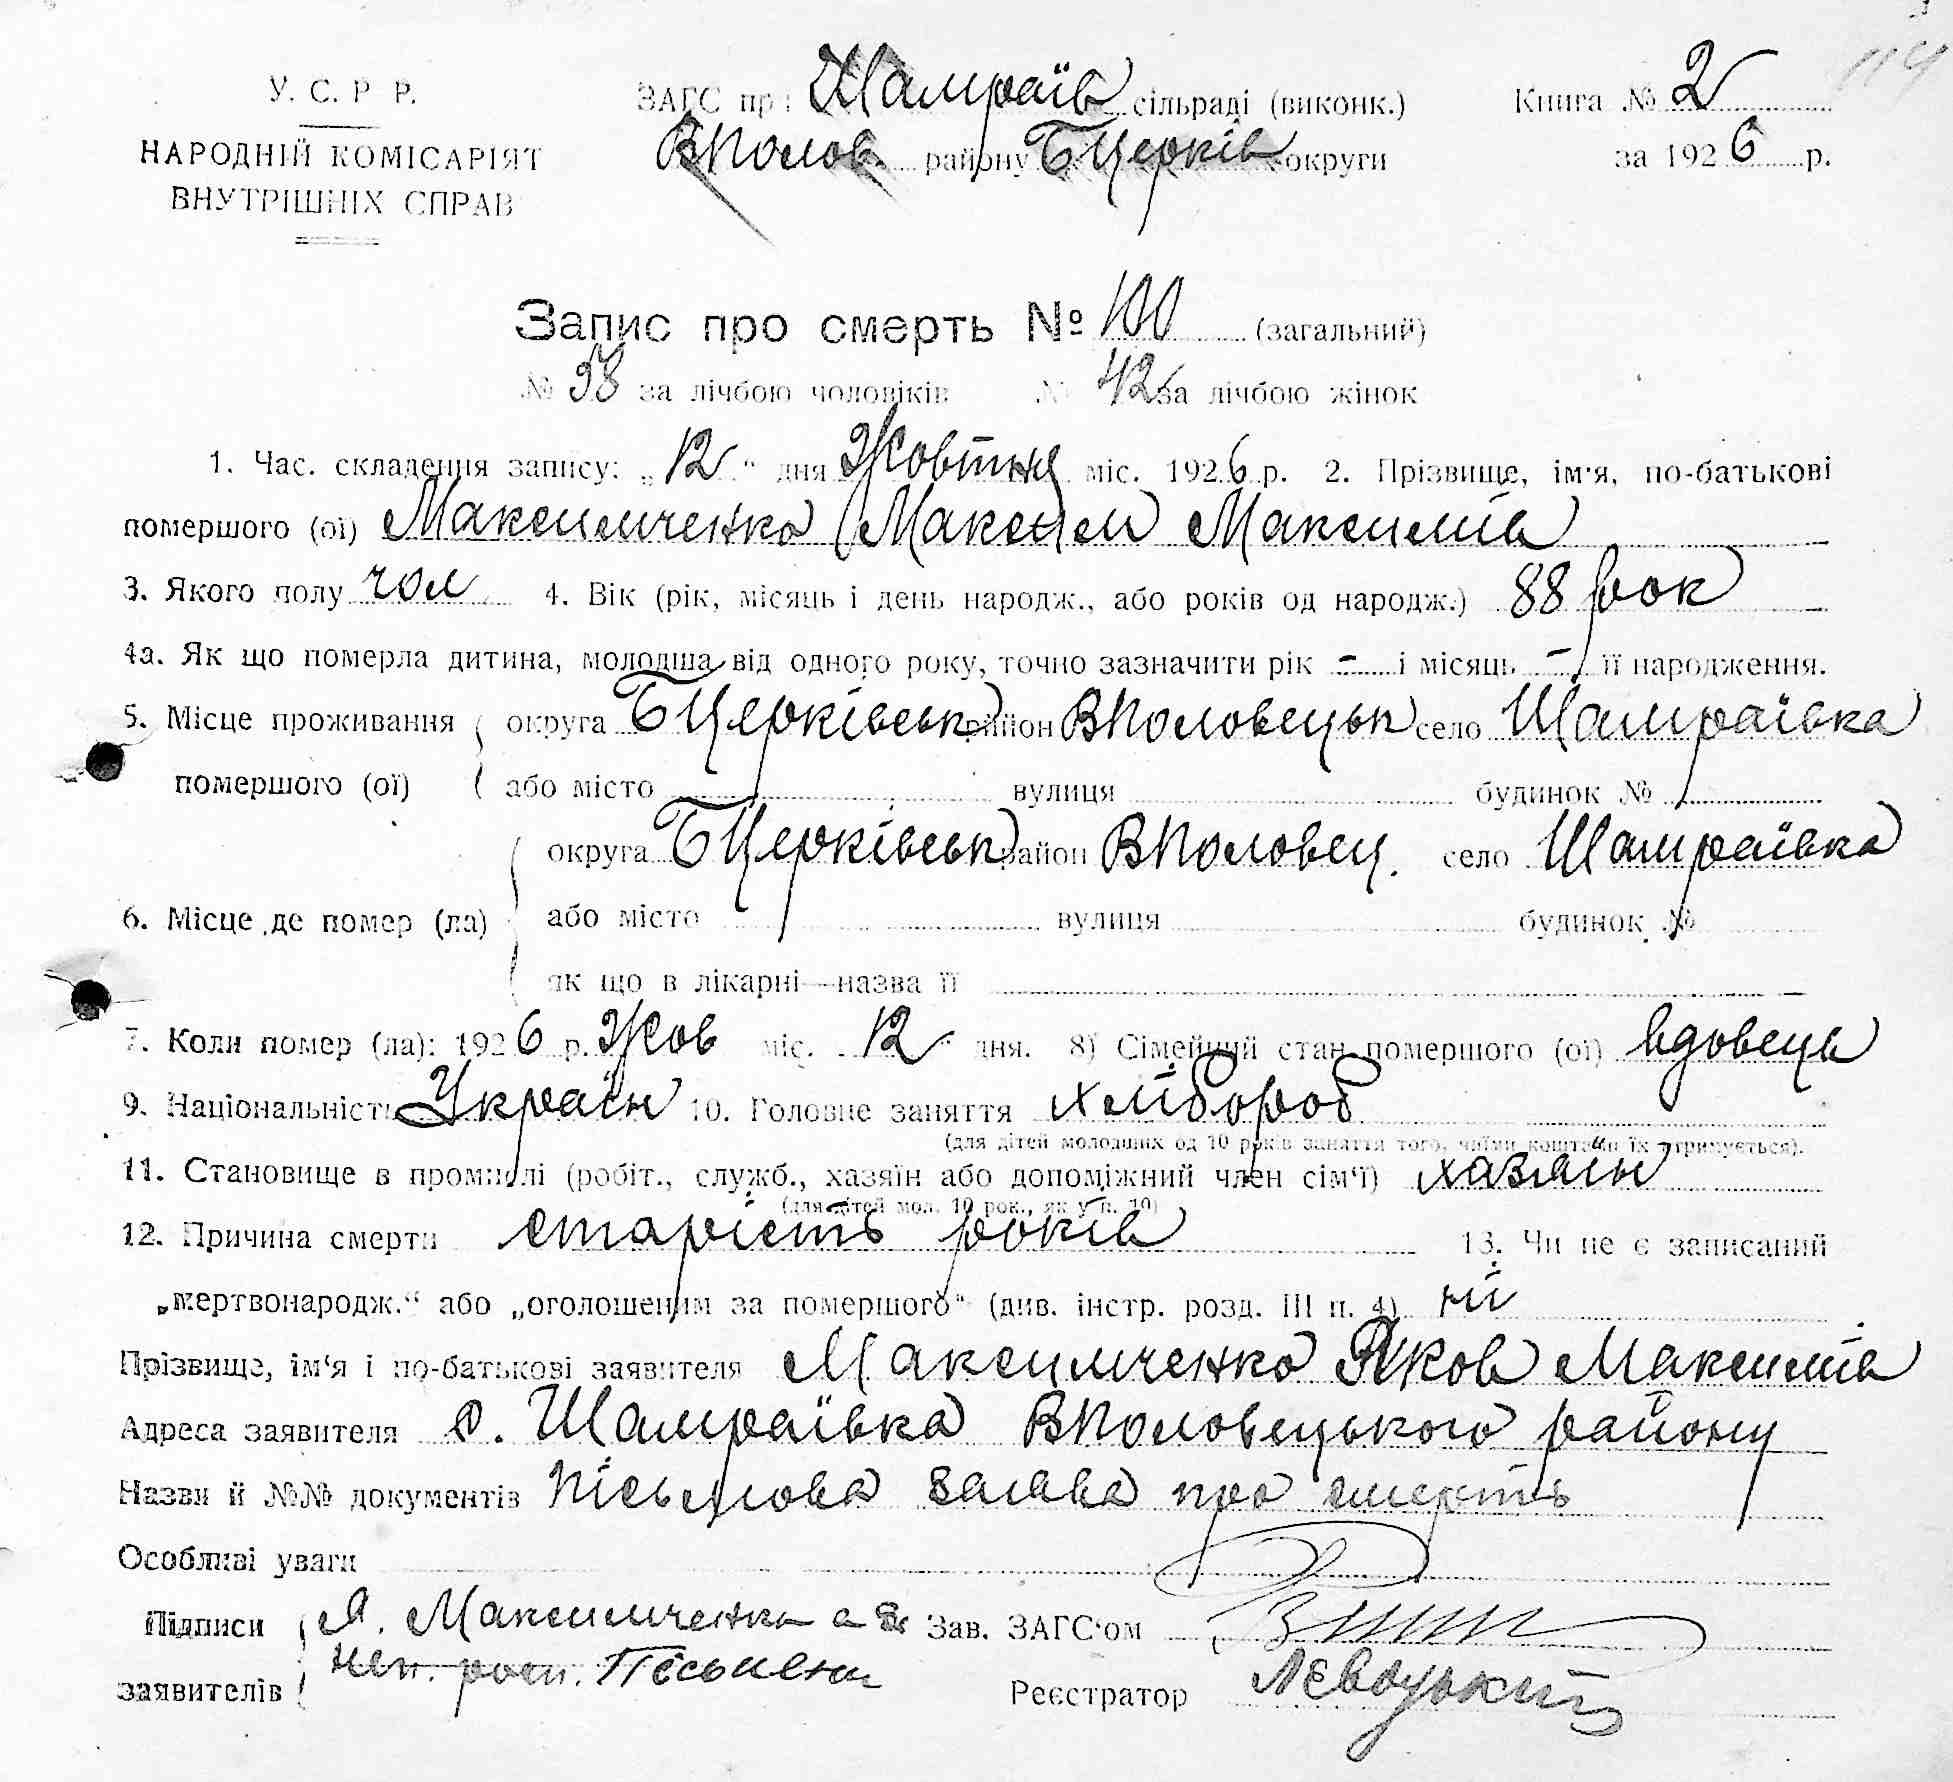 У. С. Р. Р.
НАРОДНІЙ КОМІСАРІЯТ
ВНУТРІШНІХ СПРАВ
ЗАГС при Шамраїв сільраді (виконк.)
ВПолов. району БЦерків округи
Книга № 2
за 1926 р.
114
Запис про смерть № 100 (загальний)
№ 58 за лічбою чоловіків № 42 за лічбою жінок
1. Час. складення запису: „12“ дня Жовтня міс. 1926 р. 2. Прізвище, ім'я, по-батькові
помершого (ої) Максимченко Максим Максимів
3. Якого полу чол 4. Вік (рік, місяць і день народж., або років од народж.) 88 рок
4а. Як що померла дитина, молодша від одного року, точно зазначити рік - і місяць - її народження.
5. Місце проживання округа БЦерківськ район ВПоловецьк село Шамраївка
помершого (ої) або місто вулиця будинок №
округа БЦерківськ район ВПоловец. село Шамраївка
6. Місце де помер (ла) або місто вулиця будинок №
як що в лікарні—назва її
7. Коли помер (ла): 1926 р. Жов міс. 12 дня. 8) Сімейний стан помершого (ої) вдовець
9. Національність Україн 10. Головне заняття хлібороб
(для дітей молодших од 10 років заняття того, чиїми коштами їх утримується).
11. Становище в промислі (робіт., служб., хазяїн або допоміжний член сім'ї) хазяїн
(для дітей мол. 10 рок., як у п. 10)
12. Причина смерти старість років 13. Чи не є записаний
„мертвонародж.“ або „оголошеним за помершого“ (див. інстр. розд. III п. 4) ні
Прізвище, ім'я і по-батькові заявителя Максимченко Яков Максимів
Адреса заявителя с. Шамраївка ВПоловецького району
Назви й №№ документів Пісьмова заява про смерть
Особливі уваги
Підписи Я. Максимченко а за Зав. ЗАГС'ом
неп. росп.
заявителів Реєстратор Лєвоцький